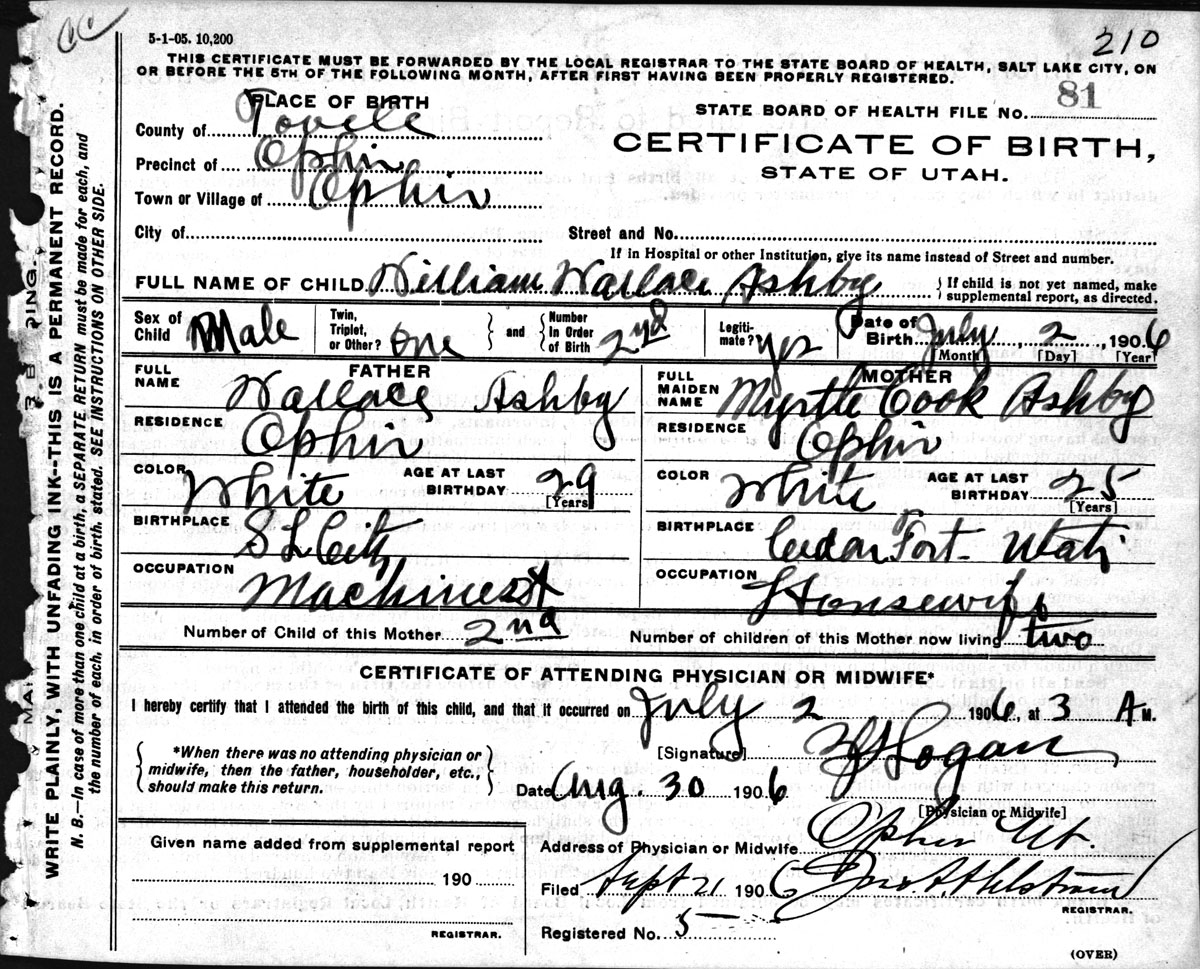 CC
5-1-05. 10,200
210
THIS CERTIFICATE MUST BE FORWARDED BY THE LOCAL REGISTRAR TO THE STATE BOARD OF HEALTH, SALT LAKE CITY, ON
OR BEFORE THE 5TH OF THE FOLLOWING MONTH, AFTER FIRST HAVING BEEN PROPERLY REGISTERED.
PLACE OF BIRTH
STATE BOARD OF HEALTH FILE No. 81
County of Tooele
CERTIFICATE OF BIRTH,
STATE OF UTAH.
Precinct of Ophir
Town or Village of Ophir
City of Street and No.
If in Hospital or other Institution, give its name instead of Street and number.
FULL NAME OF CHILD William Wallace Ashby { If child is not yet named, make
supplemental report, as directed.
Sex of Child Male Twin, Triplet, or Other? One and Number In Order of Birth 2nd Legiti-mate? Yes Date of Birth July 2, 1906
[Month] [Day] [Year]
FATHER MOTHER
FULL NAME Wallace Ashby FULL MAIDEN NAME Myrtle Cook Ashby
RESIDENCE Ophir RESIDENCE Ophir
COLOR White AGE AT LAST BIRTHDAY 29 [Years] COLOR White AGE AT LAST BIRTHDAY 25 [Years]
BIRTHPLACE S L City BIRTHPLACE Cedar Fort Utah
OCCUPATION Machinest OCCUPATION Housewife
Number of Child of this Mother 2nd Number of children of this Mother now living two
CERTIFICATE OF ATTENDING PHYSICIAN OR MIDWIFE*
I hereby certify that I attended the birth of this child, and that it occurred on July 2 1906, at 3 A M.
*When there was no attending physician or
midwife, then the father, householder, etc.,
should make this return.
[Signature] Logan
Date Aug 30 1906
[Physician or Midwife]
Given name added from supplemental report
190
REGISTRAR.
Address of Physician or Midwife Ophir Ut.
Filed Sept 21 1906 Jno. A. Ahlstrom
REGISTRAR.
Registered No. 5
(OVER)
WRITE PLAINLY, WITH UNFADING INK--THIS IS A PERMANENT RECORD.
N. B.—In case of more than one child at a birth, a SEPARATE RETURN must be made for each, and
the number of each, in order of birth, stated. SEE INSTRUCTIONS ON OTHER SIDE.